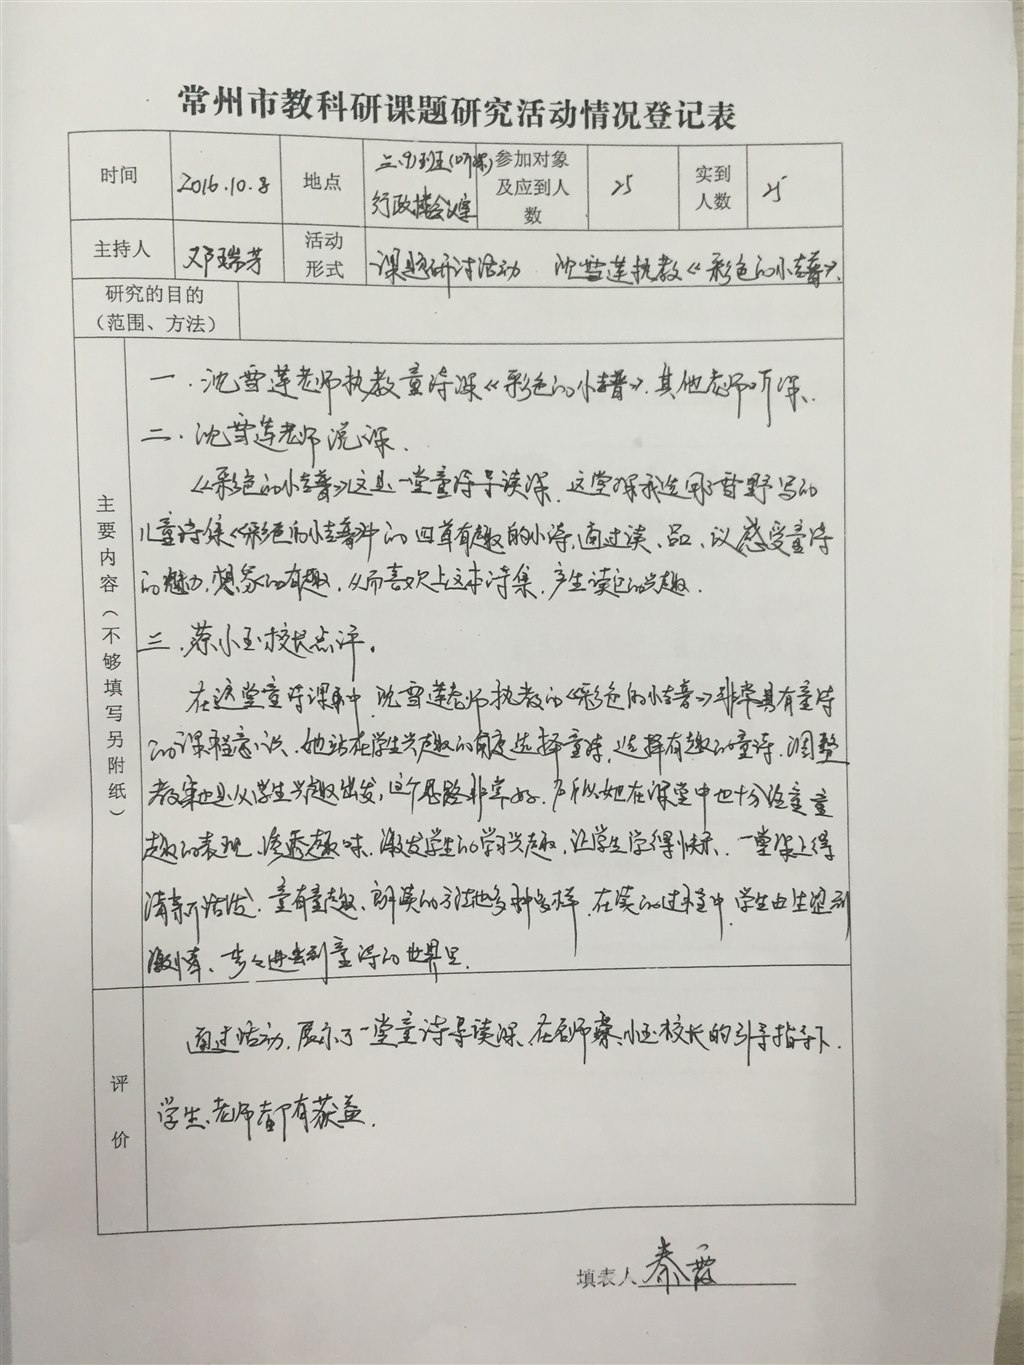 常州市教科研课题研究活动情况登记表
时间 2016.10.8 地点 三.9)班(听课) 行政楼会议室 参加对象及应到人数 25 实到人数 25
主持人 邓瑞芳 活动形式 课题研讨活动 沈雪莲执教《彩色的小蛙普》.
研究的目的
（范围、方法）
主要内容（不够填写另附纸）
一.沈雪莲老师执教童诗课《彩色的 》.其他老师听课.
二.沈雪莲老师说课.
《彩色的 》这是一堂童诗导读课.这堂课我选用 雪野写的
儿童诗集《彩色的 》中的四首有趣的小诗,通过读、品、议感受童诗
的魅力,想象的有趣,从而喜欢上这本诗集.产生读它的兴趣.
三.蔡小玉校长点评.
在这堂童诗课中,沈雪莲老师执教的《彩色的 》非常具有童诗
的课程意识.她站在学生兴趣的角度选择童诗,选择有趣的童诗.调整
教案也是从学生兴趣出发,这个思路非常好.所以她在课堂中也十分注重童
趣的表现,渗透趣味.激发学生的学习兴趣,让学生学得快乐.一堂课上得
清新活泼.童有童趣、朗读的方法也多种多样.在读的过程中.学生由生涩到
激情、步步进去到童诗的世界里.
评价
通过活动.展示了一堂童诗导读课.在名师蔡小玉校长的引导指导下.
学生、老师都有获益.
填表人 秦霞